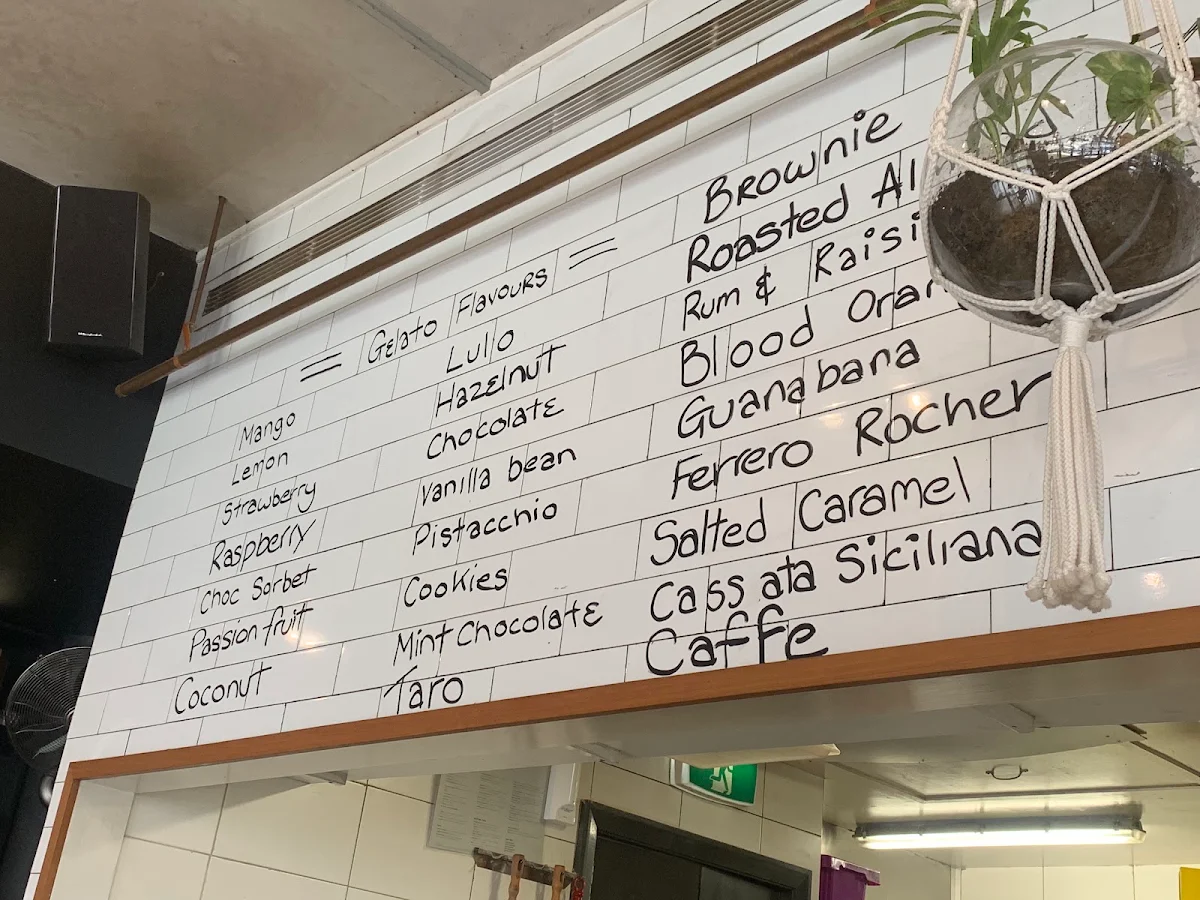 = Gelato Flavours =
Mango
Lemon
Strawberry
Raspberry
Choc Sorbet
Passion fruit
Coconut
Lullo
Hazelnut
Chocolate
Vanilla bean
Pistacchio
Cookies
Mint Chocolate
Taro
Brownie
Roasted Al
Rum & Raisi
Blood Oran
Guanabana
Ferrero Rocher
Salted Caramel
Cassata Siciliana
Caffe